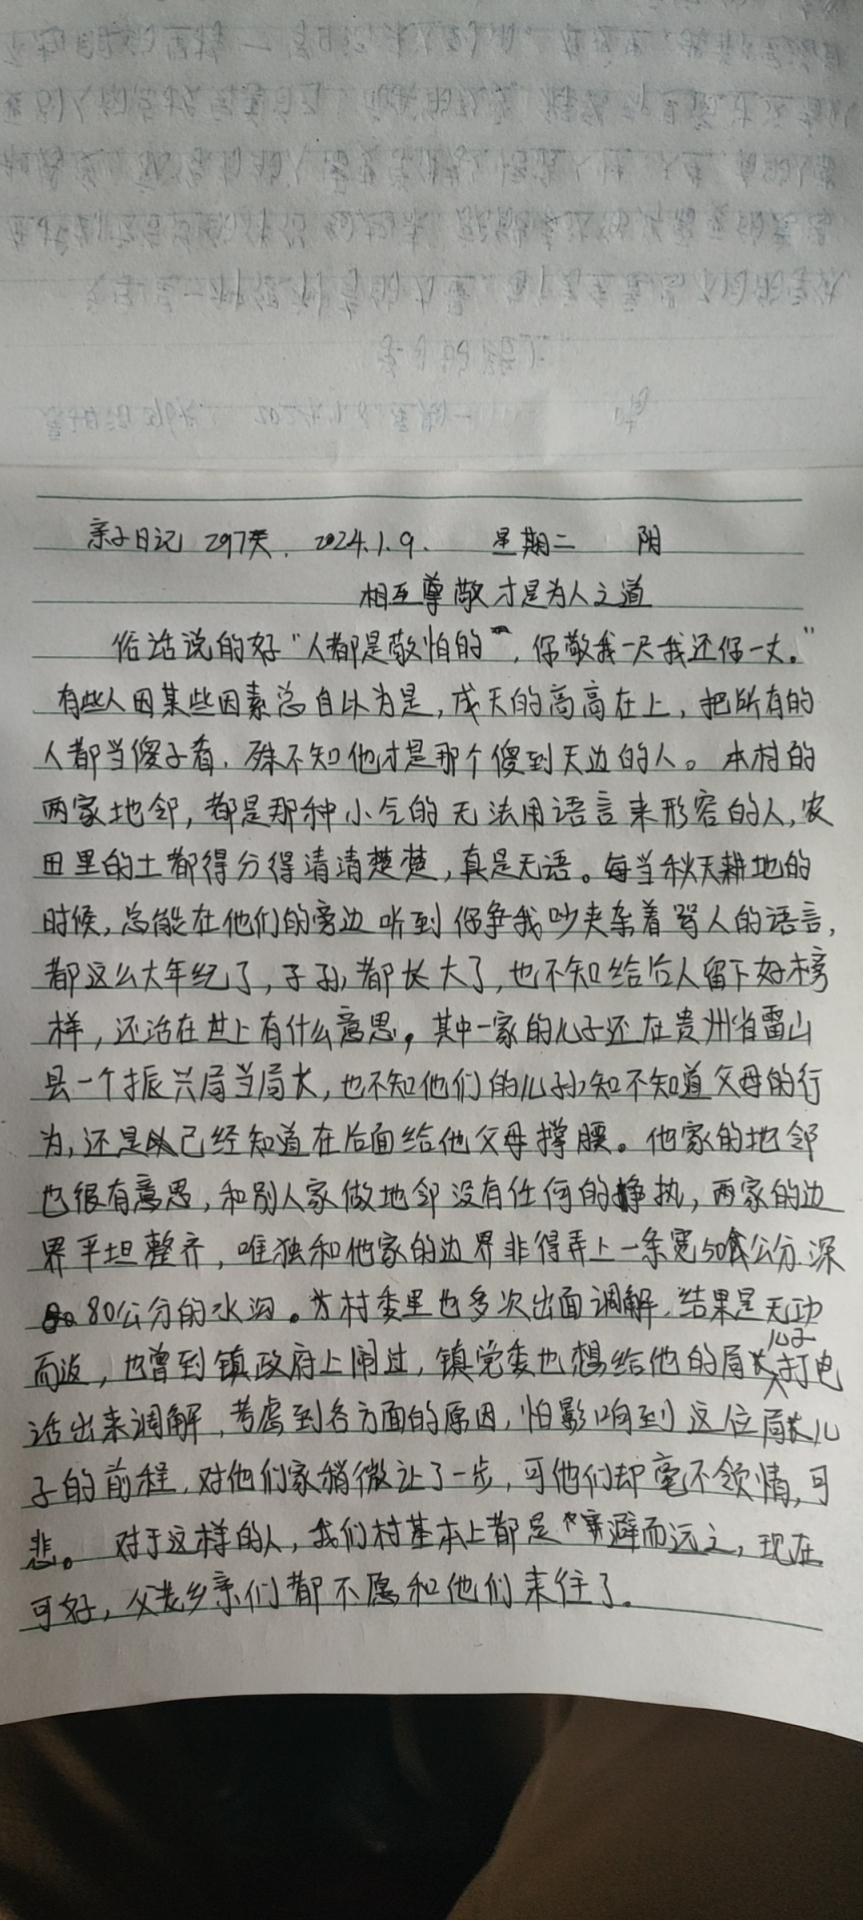 亲子日记 297天. 2024.1.9. 星期二 阴
相互尊敬才是为人之道
俗话说的好"人都是敬怕的", 你敬我一尺我还你一丈。"
有些人因某些因素总自以为是, 成天的高高在上, 把所有的
人都当傻子看, 殊不知他才是那个傻到天边的人。本村的
两家地邻, 都是那种小气的无法用语言来形容的人, 农
田里的土都得分得清清楚楚, 真是无语。每当秋天耕地的
时候, 总能在他们的旁边听到你争我吵夹杂着骂人的语言,
都这么大年纪了, 子孙都长大了, 也不知给后人留下好榜
样, 还活在世上有什么意思, 其中一家的儿子还在贵州省雷山
县一个振兴局当局长, 也不知他们的儿孙知不知道父母的行
为, 还是已经知道在后面给他父母撑腰。他家的地邻
也很有意思, 和别人家做地邻没有任何的挣执, 两家的边
界平坦整齐, 唯独和他家的边界非得弄上一条宽50公分.深
80公分的水沟。村委里也多次出面调解, 结果是无功
而返, 也曾到镇政府上闹过, 镇党委也想给他的局长儿子打电
话出来调解, 考虑到各方面的原因, 怕影响到这位局长儿
子的前程, 对他们家稍微让了一步, 可他们却毫不领情, 可
悲。对于这样的人, 我们村基本上都是避而远之, 现在
可好, 父老乡亲们都不愿和他们来往了.